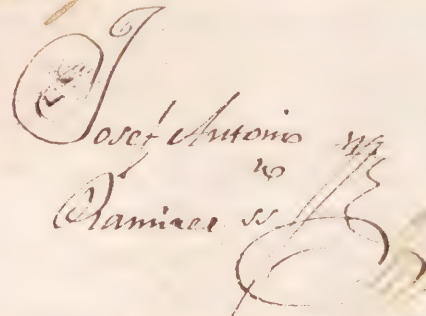 Josef Antonio
Ramirez ss